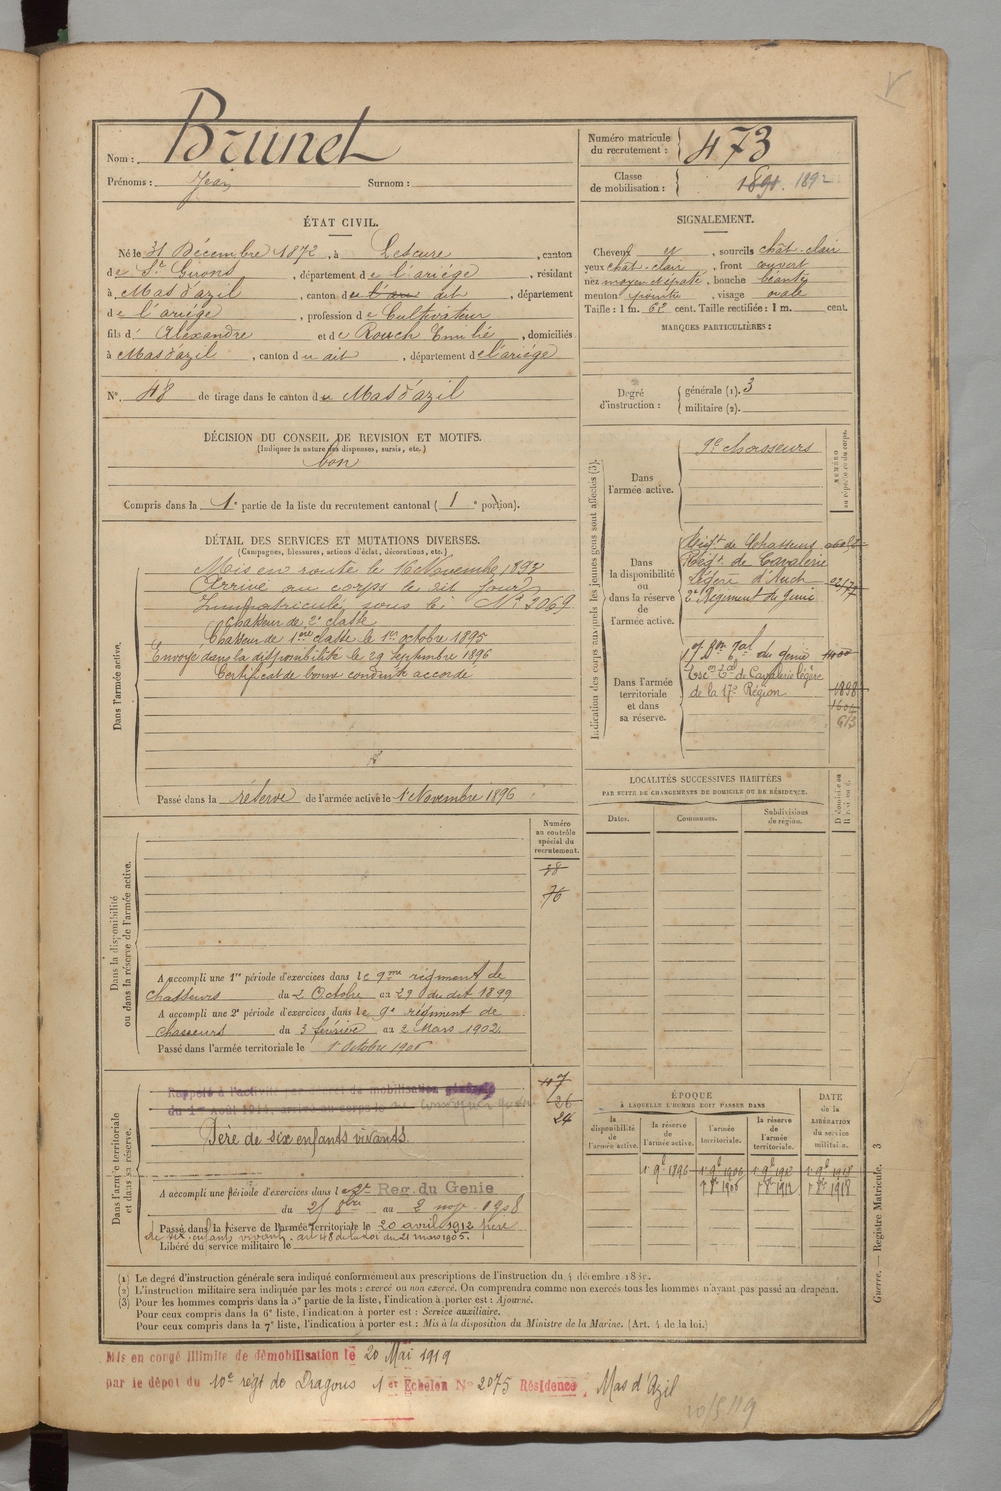 Nom : Brunet
Prénoms : Jean Surnom :
Numéro matricule
du recrutement : 473
Classe
de mobilisation : 1891. 1892
ÉTAT CIVIL.
Né le 31 Décembre 1872, à Lescure, canton
de St Girons, département de l'ariège, résidant
à Mas d'azil, canton du l'ar dit, département
de l'ariège, profession de Cultivateur
fils d' Alexandre et de Rouch Emilie, domiciliés
à Mas d'azil, canton du dit, département de l'ariége
N° 48 de tirage dans le canton du Mas d'azil
SIGNALEMENT.
Cheveux et, sourcils chât-clair
yeux chât-clair, front couvert
nez moyen épaté, bouche béante
menton pointu, visage ovale
Taille : 1 m. 62 cent. Taille rectifiée : 1 m. cent.
MARQUES PARTICULIÈRES :
Degré
d'instruction :
générale (1). 3
militaire (2).
DÉCISION DU CONSEIL DE REVISION ET MOTIFS.
(Indiquer la nature des dispenses, sursis, etc.)
bon
Compris dans la 1e partie de la liste du recrutement cantonal ( 1 e portion).
DÉTAIL DES SERVICES ET MUTATIONS DIVERSES.
(Campagnes, blessures, actions d'éclat, décorations, etc.)
Dans l'armée active.
Mis en route le 16 Novembre 1893
Arrivé au corps le dit jour
Immatriculé sous le N° 2069
Chasseur de 2e classe
Chasseur de 1ère classe le 1er octobre 1895
Envoyé dans la disponibilité le 29 Septembre 1896
Certificat de bonne conduite accordé
Passé dans la réserve de l'armée active le 1 Novembre 1896
Indication des corps auxquels les jeunes gens sont affectés (3).
NUMÉRO
au répertoire du corps.
Dans
l'armée active.
9e chasseurs
Dans
la disponibilité
ou
dans la réserve
de
l'armée active.
Régt de Chasseurs
Régt de Cavalerie
légère d'Auch
2e Régiment du Génie
Dans l'armée
territoriale
et dans
sa réserve.
17 Bon Tal du génie
de Cavalerie légère
de la 17e Région
1898
613
LOCALITÉS SUCCESSIVES HABITÉES
PAR SUITE DE CHANGEMENTS DE DOMICILE OU DE RÉSIDENCE.
Dates. Communes. Subdivisions
de région.
Dans la disponibilité
ou dans la réserve de l'armée active.
Numéro
au contrôle
spécial du
recrutement.
38
76
A accompli une 1re période d'exercices dans le 9me régiment de
chasseurs du 2 Octobre au 29 du dit 1899
A accompli une 2e période d'exercices dans le 9e régiment de
chasseurs du 3 février au 2 Mars 1902
Passé dans l'armée territoriale le 1 Octobre 1906
Dans l'armée territoriale
et dans sa réserve.
Rappelé à l'activité par décret de mobilisation générale
du 1er Août 1914, arrivé au corps le
26
24
Père de six enfants vivants.
A accompli une période d'exercices dans le 2e Reg. du Genie
du 25 8bre au 2 nov. 1908
Passé dans la réserve de l'armée territoriale le 20 avril 1912 père
de six enfants vivants. art 48 de la loi du 21 mars 1905.
Libéré du service militaire le
ÉPOQUE
À LAQUELLE L'HOMME DOIT PASSER DANS
la
disponibilité
de
l'armée active.
la réserve
de
l'armée active.
l'armée
territoriale.
la réserve
de
l'armée
territoriale.
DATE
de la
LIBÉRATION
du service
militaire.
1 9b 1896 1 9b 1906 1 9b 1912 1 9b 1918
1 8b 1906 1 8b 1912 1 8b 1918
(1) Le degré d'instruction générale sera indiqué conformément aux prescriptions de l'instruction du 4 décembre 1889.
(2) L'instruction militaire sera indiquée par les mots : exercé ou non exercé. On comprendra comme non exercés tous les hommes n'ayant pas passé au drapeau.
(3) Pour les hommes compris dans la 5e partie de la liste, l'indication à porter est : Ajourné.
Pour ceux compris dans la 6e liste, l'indication à porter est : Service auxiliaire.
Pour ceux compris dans la 7e liste, l'indication à porter est : Mis à la disposition du Ministre de la Marine. (Art. 4 de la loi.)
Guerre. — Registre Matricule. 3
Mis en congé illimité de démobilisation le 20 Mai 1919
par le dépôt du 10e régt de Dragons 1er Echelon N° 2075 Résidence, Mas d'Azil
20/5/19